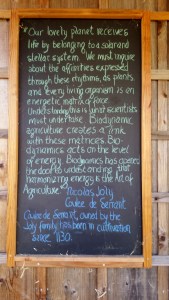 "Our lovely planet receives
life by belonging to a solar and
stellar system. We must inquire
about the affinities expressed
through these rhythms, as plants
and every living organism is an
energetic matrix of force.
Understanding this is what scientists
must undertake. Biodynamic
agriculture creates a link
with these matrices. Bio-
dynamics acts on the level
of energy. Biodynamics has opened
the door to understanding that
harmonizing energy is the Art of
Agriculture" Nicolas Joly
Coulee de Serrant
Coulee de Serrant, owned by the
Joly family has been in cultivation
since 1130.